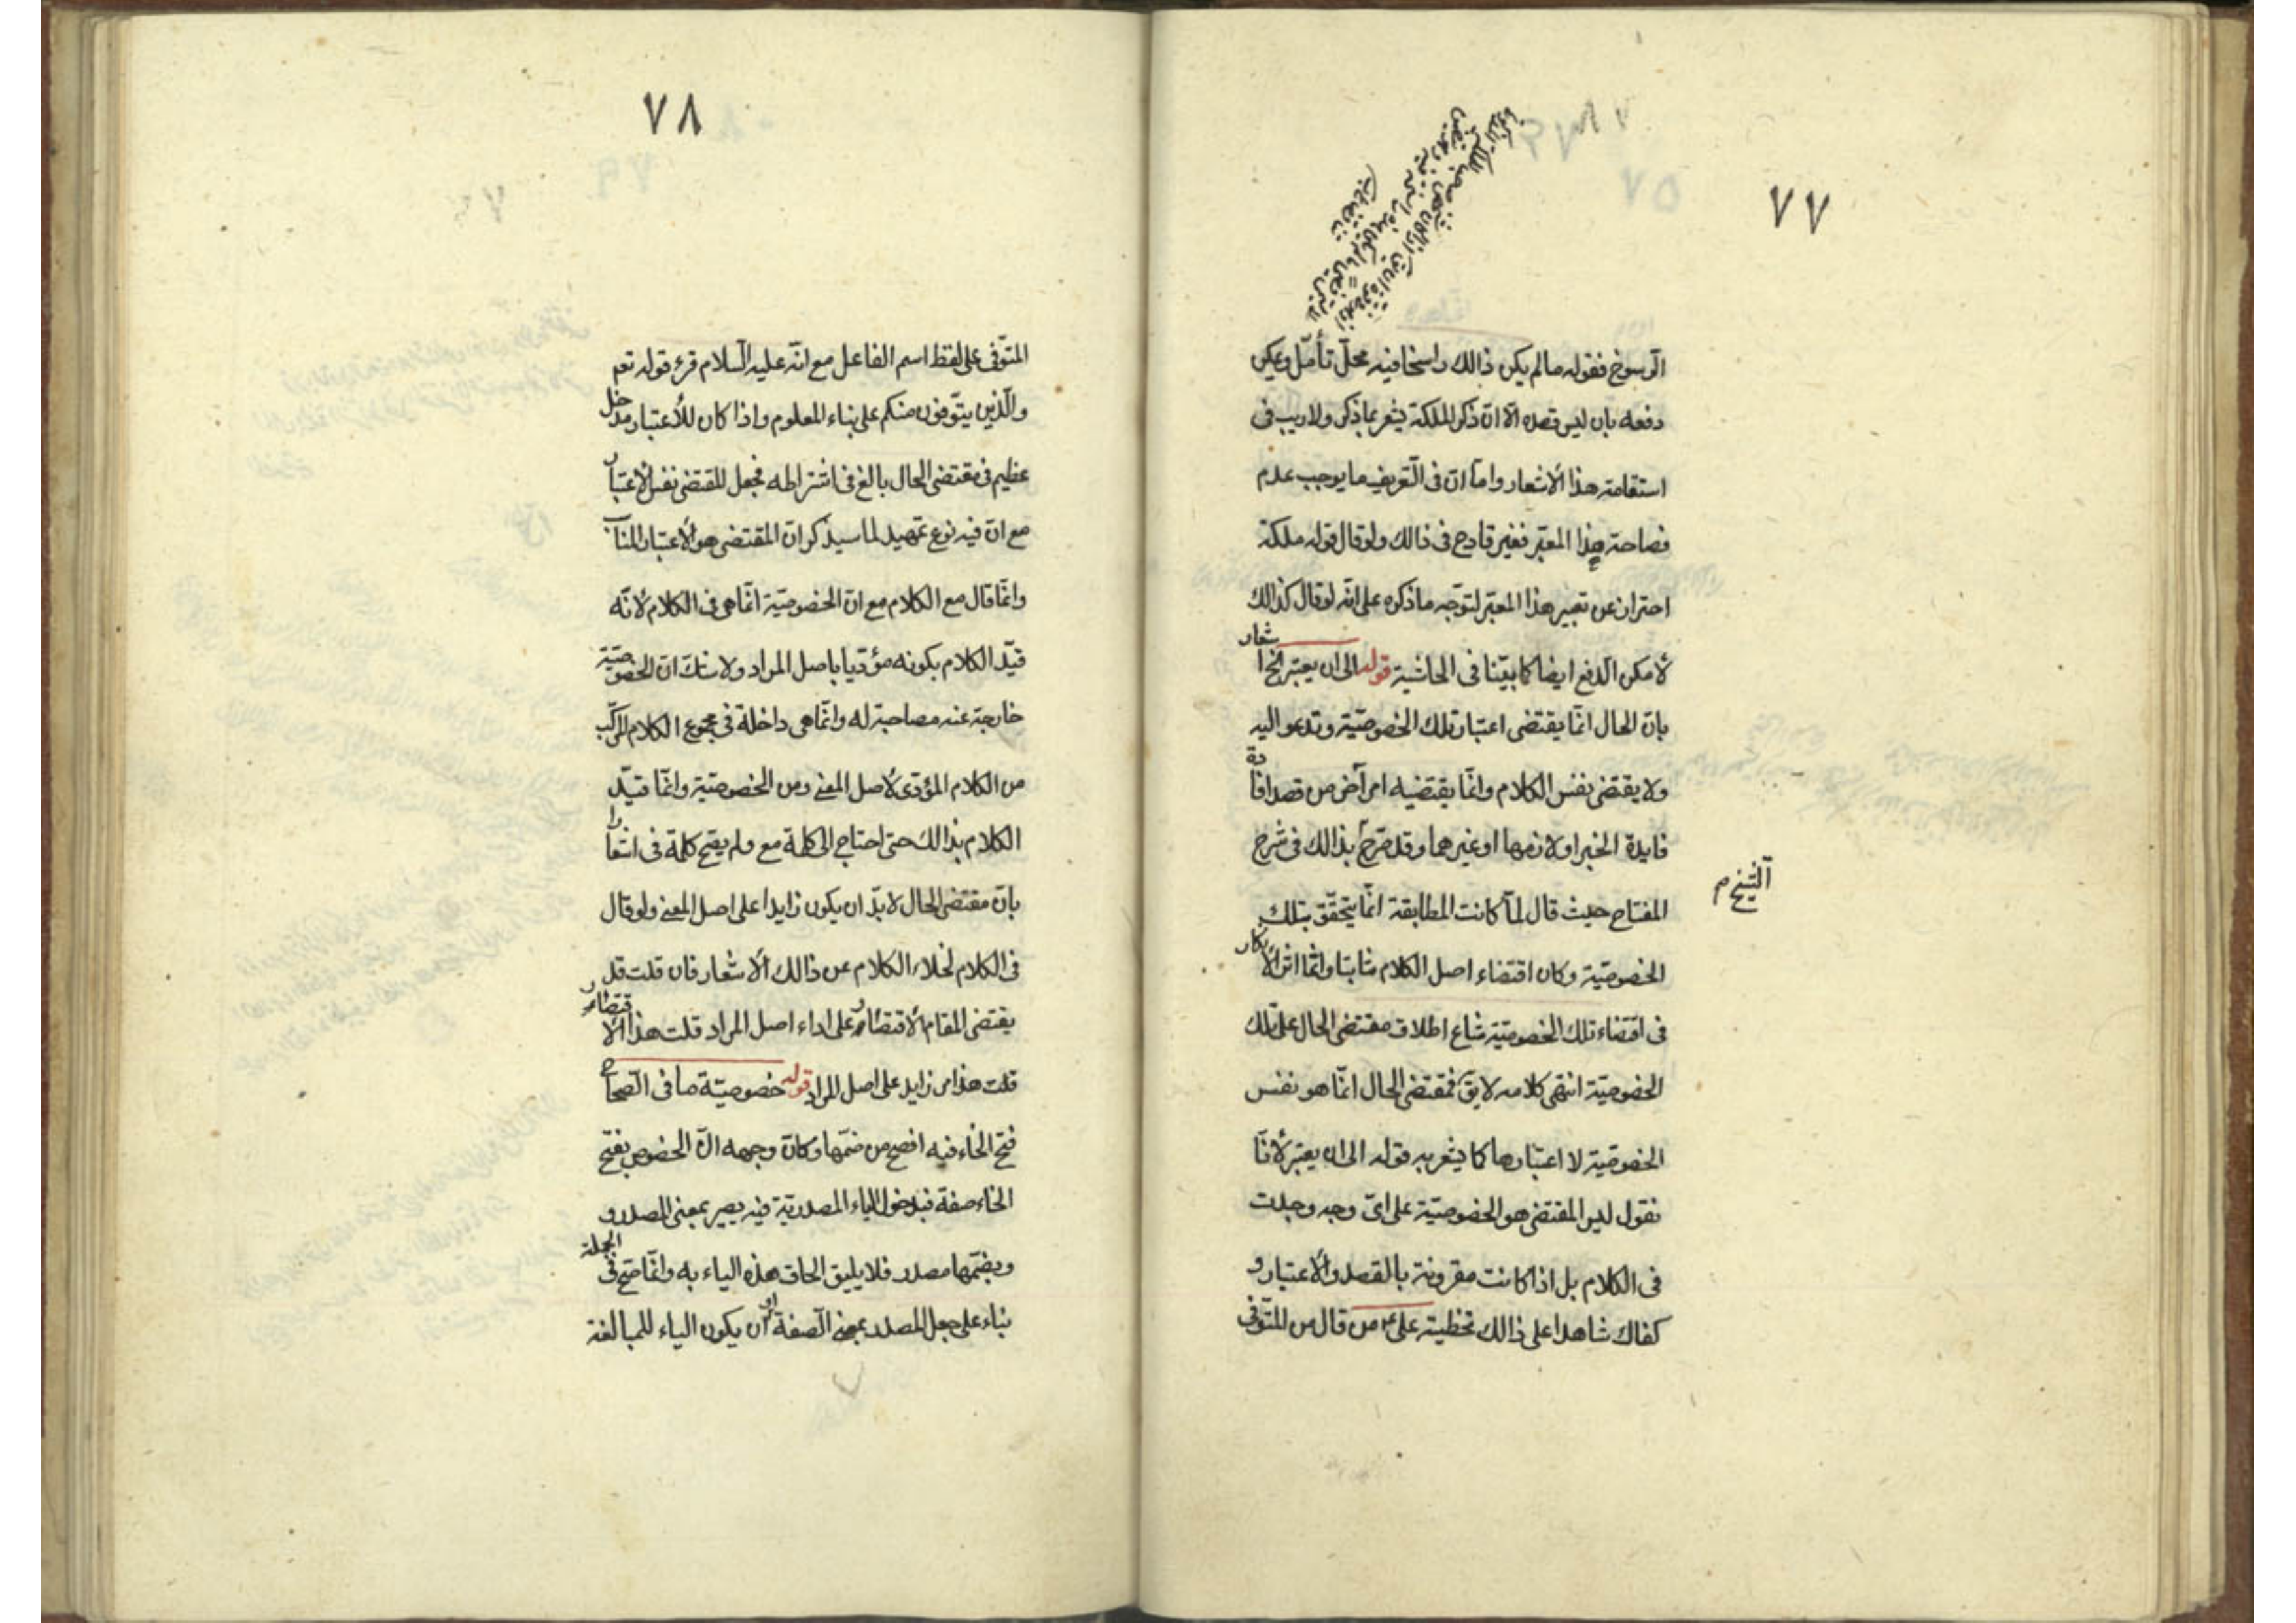 ٧٧
الرّسوخ فقوله مالم يكن ذالك راسخا فيه محلّ تأمّل ويمكن
دفعه بان ليس قصده الّا انّ ذكر الملكة يشعر بما ذكر ولا ريب فى
استقامة هذا الأشعار وامّا انّ فى التّعريف ما يوجب عدم
فصاحة هذا المعبّر فغير قادح فى ذالك ولو قال قوله ملكة
احتراز عن تعبير هذا المعبّر لتوجّه ما ذكره على انّه لو قال كذالك
لأمكن الّدفع ايضا كما بيّنا فى الحاشية قوله الى ان يعتبر الخ اشعار
بانّ الحال انّما يقتضى اعتبار تلك الخصوصيّة وتدعو اليه
ولا يقتضى نفس الكلام وانّما يقتضيه امر آخر من قصد افادة
فايدة الخبر او لازمها او غيرهما وقد صّرح بذالك فى شرح
المفتاح حيث قال لمّا كانت المطابقة انّما يتحقّق بتلك
الشّيخ م
الخصوصيّة وكان اقتضاء اصل الكلام ثابتا وانّما اثر الأنكار
فى اقتضاء تلك الخصوصيّة شاع اطلاق مقتضى الحال على تلك
الخصوصيّة انتهى كلامه لا يقّ فمقتضى الحال انّما هو نفس
الخصوصيّة لا اعتبارها كما يشعر به قوله الى ان يعتبر لأنّا
نقول ليس المقتضى هو الخصوصيّة على اىّ وجه وجدت
فى الكلام بل اذا كانت مقرونة بالقصد والأعتبار و
كفاك شاهدا على ذالك تخطيته على ع من قال من المتوّفى
٧٨
المتوّفى على لفظ اسم الفاعل مع انّه عليه الّسلام قرء قوله تعم
والّذين يتوّفون منكم على بناء المعلوم واذا كان للأعتبار مدخل
عظيم فى مقتضى الحال بالغ فى اشتراطه فجعل المقتضى نفس الأعتبار
مع انّ فيه نوع تمهيد لما سيذكر انّ المقتضى هو الأعتبار المناسب
وانّما قال مع الكلام مع انّ الخصوصيّة انّما هى فى الكلام لأنّه
قيّد الكلام بكونه مؤدّيا باصل المراد ولا شك انّ الخصوصيّة
خارجة عنه مصاحبة له وانّما هى داخلة فى مجموع الكلام المركّب
من الكلام المؤدّى لأصل المعنى ومن الخصوصيّة وانّما قيّد
الكلام بذالك حتى احتاج الى كلمة مع ولم يصحّ كلمة فى اشعارا
بانّ مقتضى الحال لا بدّ ان يكون زايدا على اصل المعنى ولو قال
فى الكلام لخلاء الكلام عن ذالك الأشعار فان قلت قد
يقتضى المقام الأقتصار على اداء اصل المراد قلت هذا الأقتصار
قلت هذا امر زايد على اصل المراد قوله خصوصيّة ما فى الّصحاح
فتح الخاء فيه افصح من ضمّها وكانّ وجهه انّ الخصوص بفتح
الخاء صفة فبدخول الياء المصدريّة فيه يصير بمعنى المصدر و
وبضمّها مصدر فلا يليق الحاق هذه الياء به وانّما صّح فى الجملة
بناء على جعل المصدر بمعنى الّصفة او ان يكون الياء للمبالغة